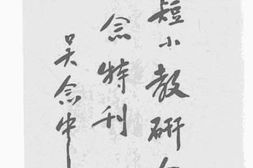 短小教研
念特刊
吴念中